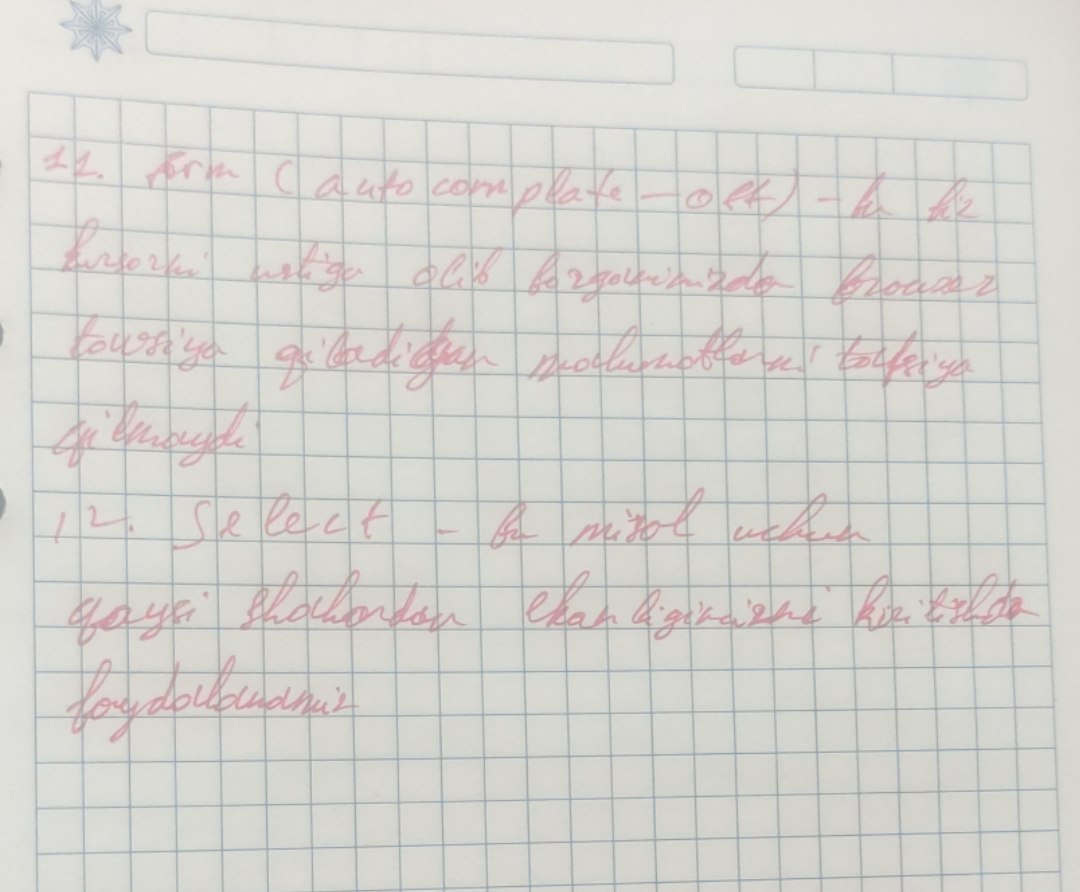 11. form (autocomplate - off) - bu biz
kursorni ustiga olib borganimizda brouzer
tavsiya qiladigan malumotlarni tavsiya
qilmaydi
12. Select - bu misol uchun
qaysi shahardan ekanligimizni kiritishda
foydalanamiz